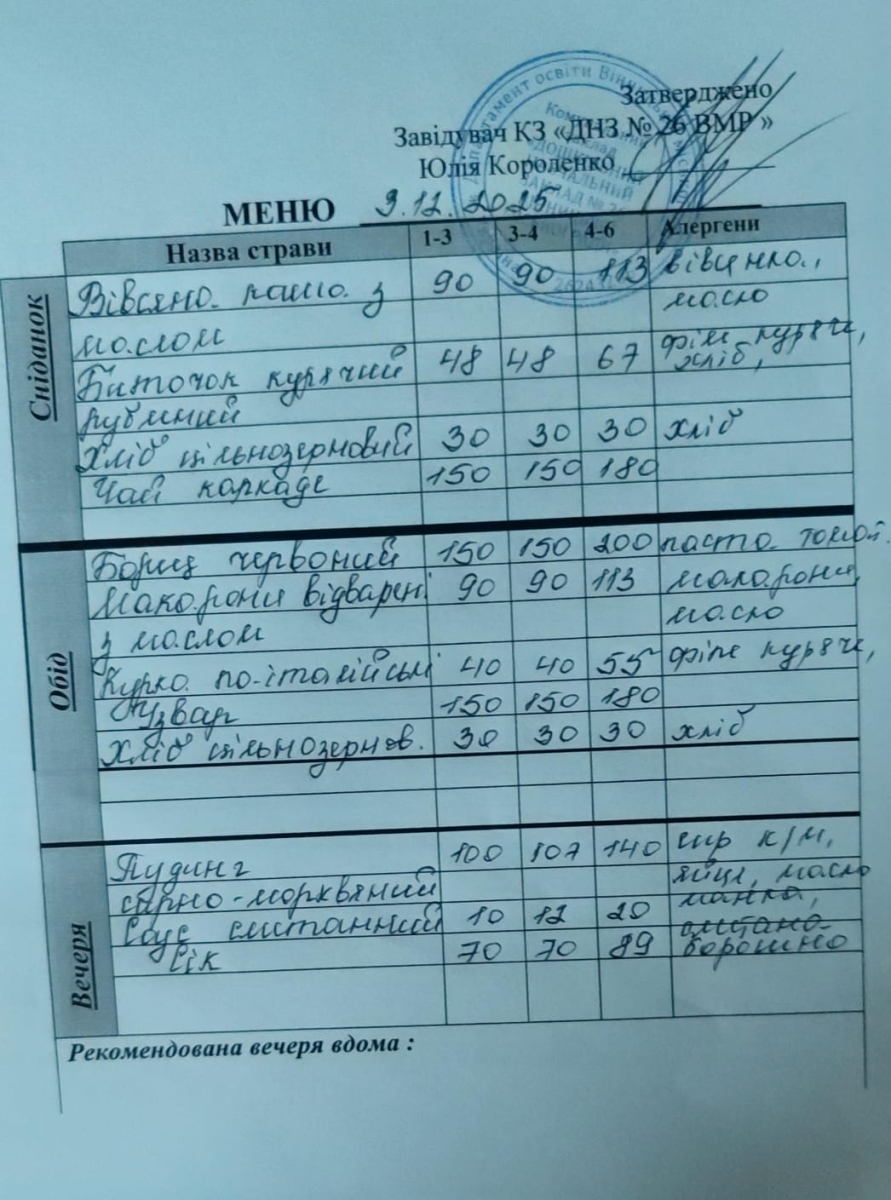 Затверджено
Завідувач КЗ «ДНЗ № 26 ВМР »
Юлія Короленко
МЕНЮ 9.12.2025
Назва страви 1-3 3-4 4-6 Алергени
Сніданок
Вівсяна каша з 90 90 113 вівсянка,
маслом масло
Биточок курячий 48 48 67 філе куряче,
рублений хліб,
Хліб цільнозерновий 30 30 30 хліб
Чай каркаде 150 150 180
Обід
Борщ червоний 150 150 200 паста томат.
Макарони відварені 90 90 113 макарони,
з маслом масло
Курка по-італійські 40 40 55 філе куряче,
Узвар 150 150 180
Хліб цільнозернов. 30 30 30 хліб
Вечеря
Пудинг 100 107 140 сир к/м,
сирно-морквяний яйця, масло
манка,
Соус сметанний 10 12 20 сметана
Сік 70 70 89 борошно
Рекомендована вечеря вдома :